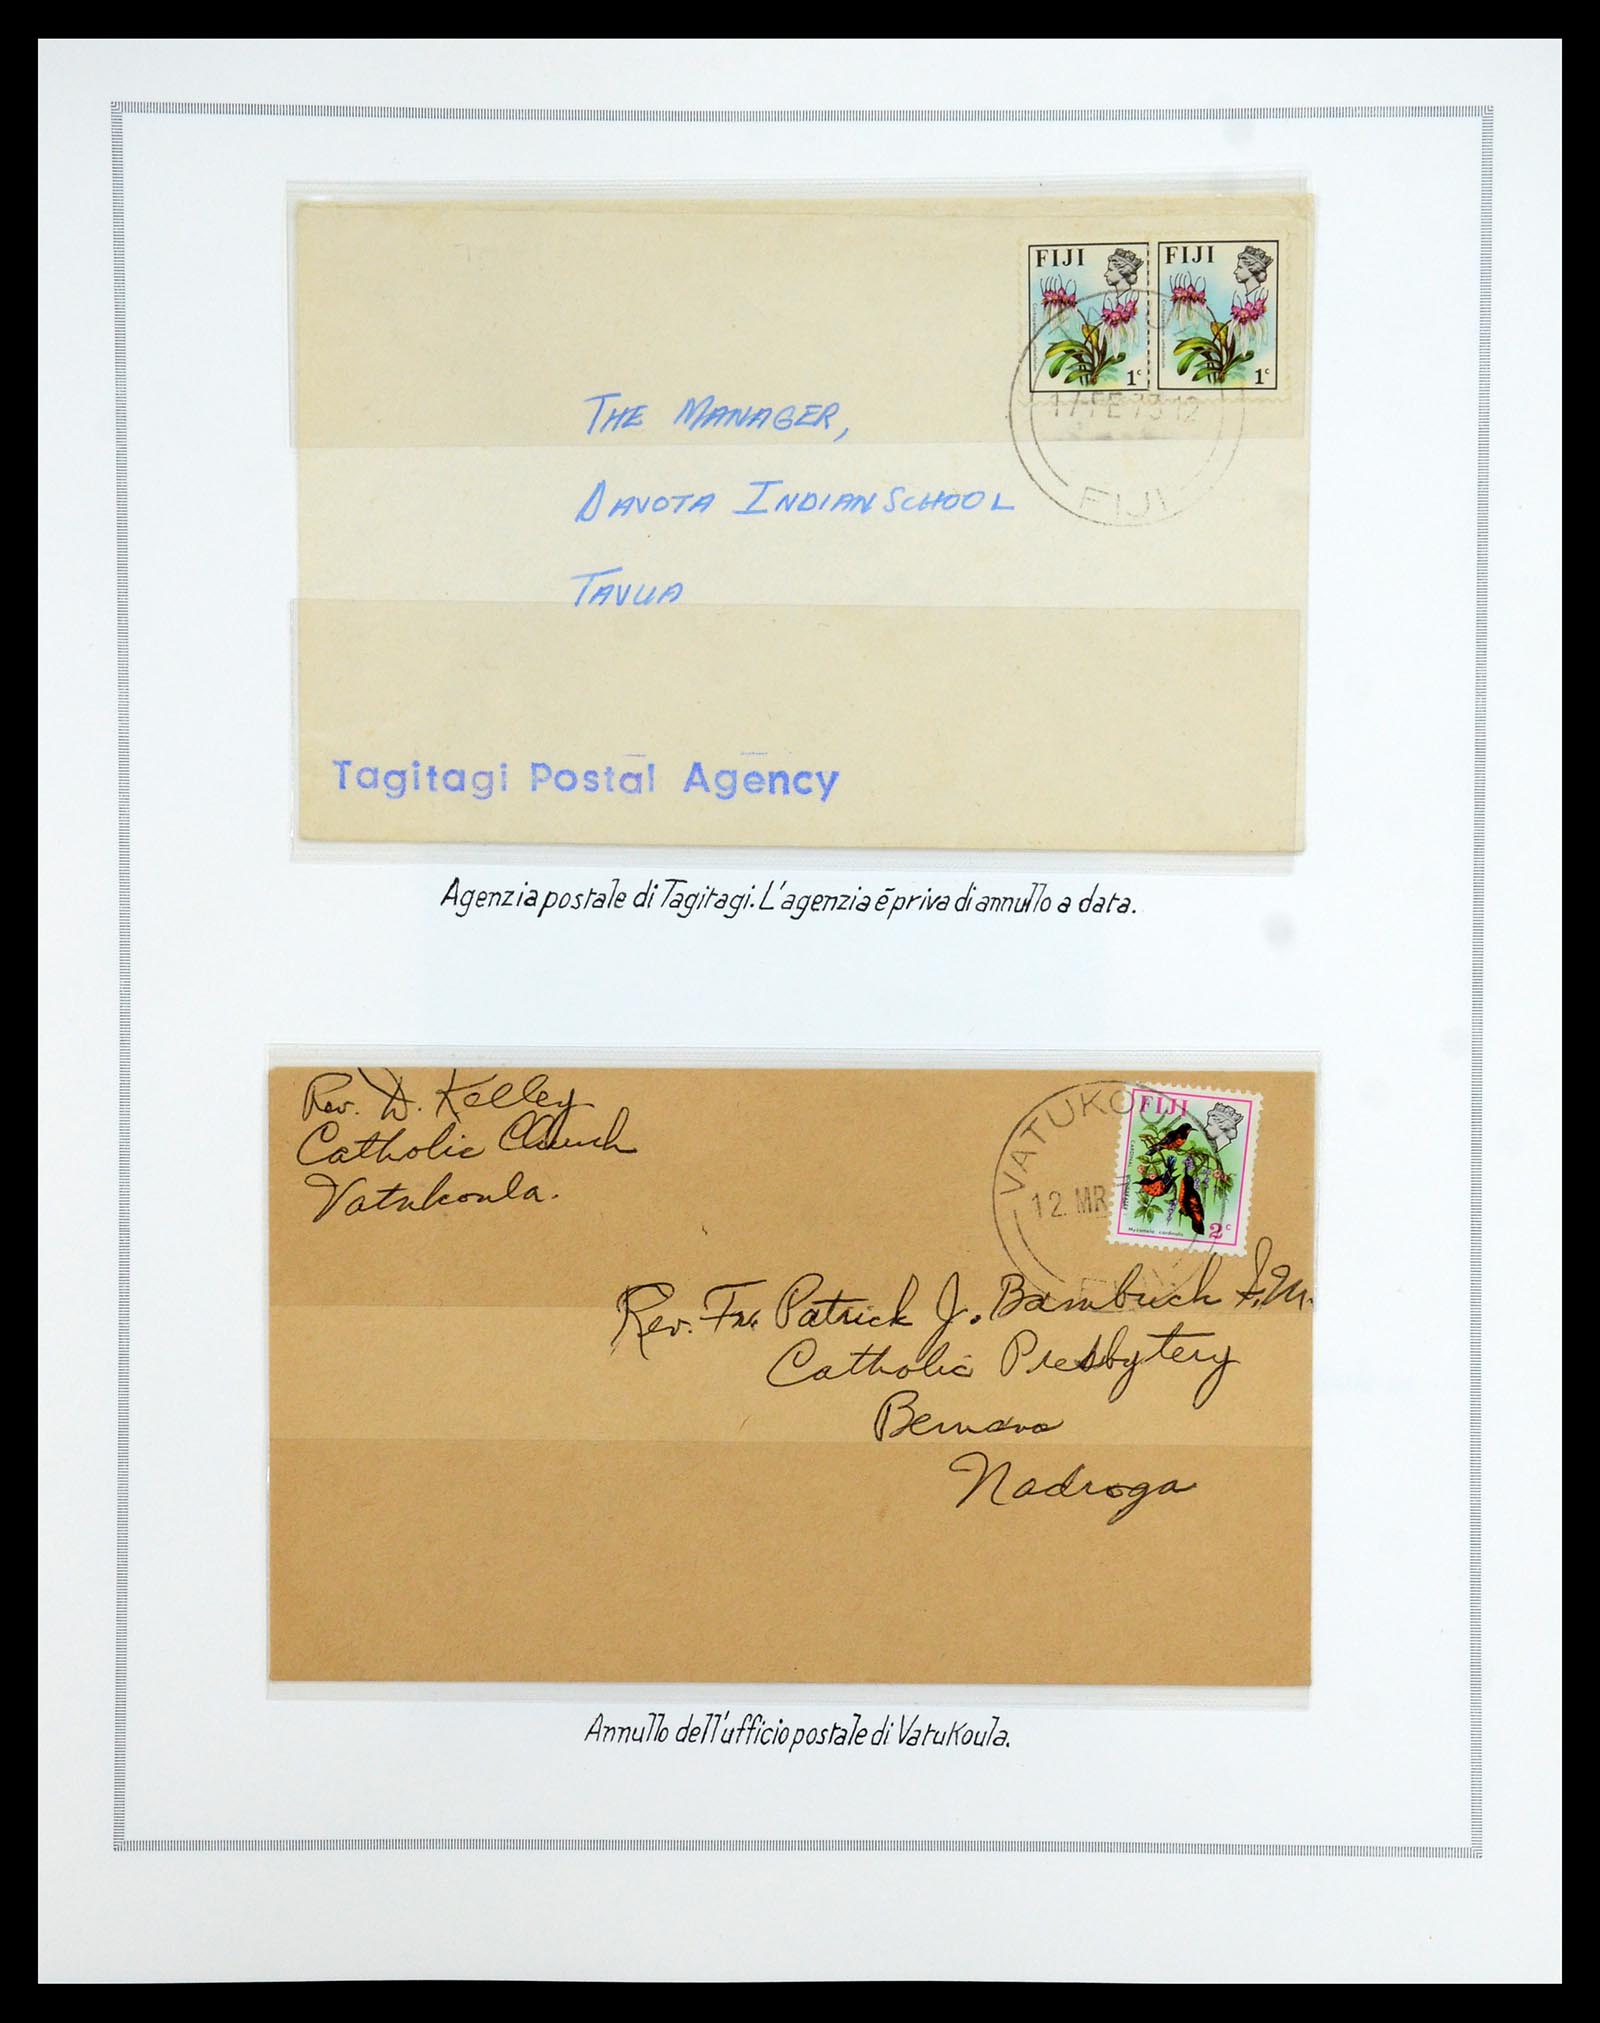 FIJI FIJI
1c 1c
17 FE 73 12
FIJI
THE MANAGER,
DAVOTA INDIAN SCHOOL
TAVUA
Tagitagi Postal Agency
Agenzia postale di Tagitagi. L'agenzia è priva di annullo a data.
Rev. D. Kelley
Catholic Church
Vatukoula.
VATUKOUL
12. MR
FIJI
CARDINAL
Myzomela cardinalis
2c
Rev. Fr. Patrick J. Bambuch S.M.
Catholic Presbytery
Nadroga
Annullo dell'ufficio postale di Vatukoula.